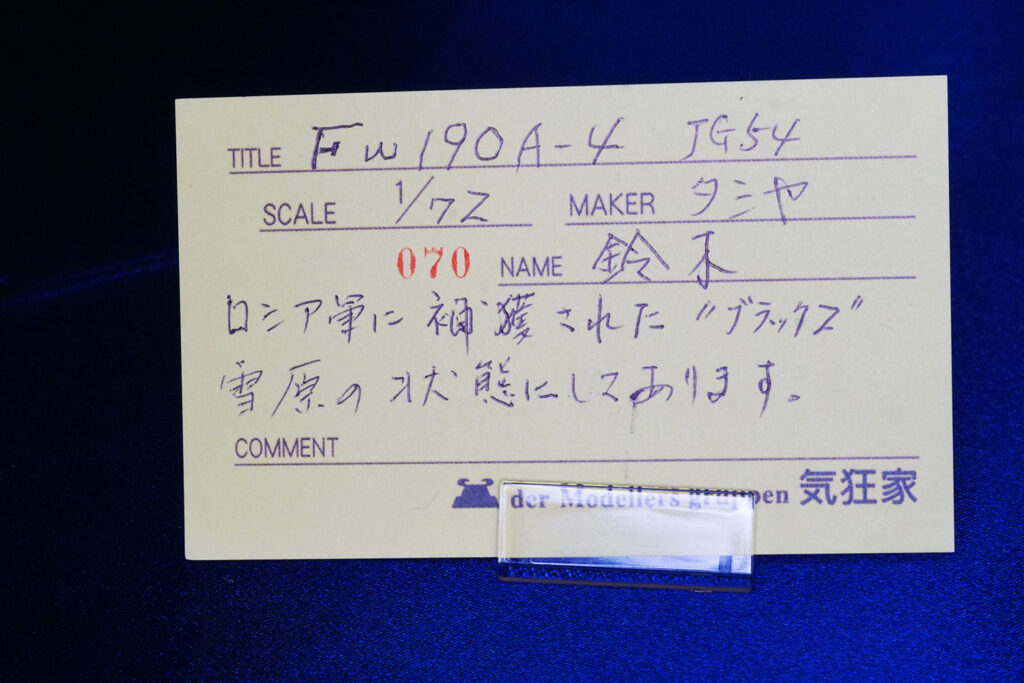 TITLE Fw190A-4 JG54
SCALE 1/72 MAKER タミヤ
070 NAME 鈴木
ロシア軍に補獲された"ブラック2"
雪原の状態にしてあります。
COMMENT
der Modellers gruppen 気狂家